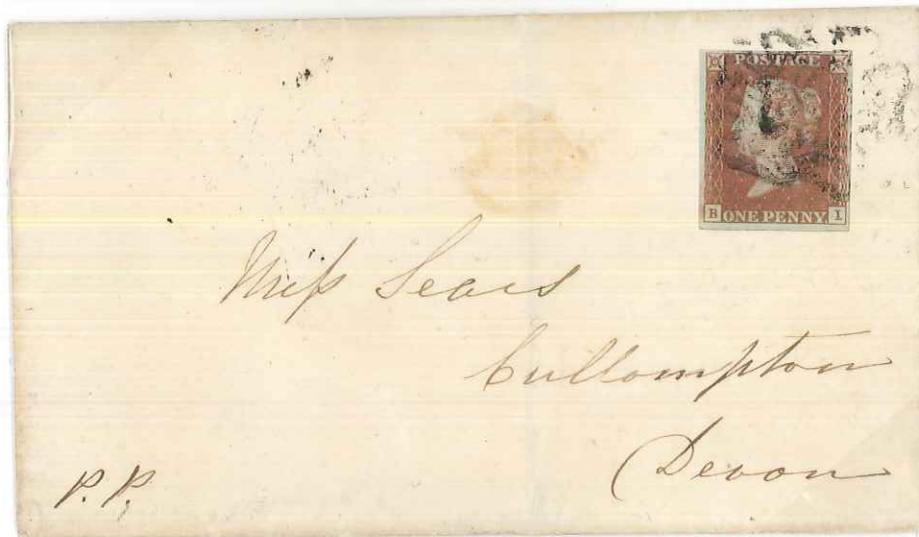 POSTAGE
B ONE PENNY I
Miſs Sears
Cullompton
Devon
P. P.